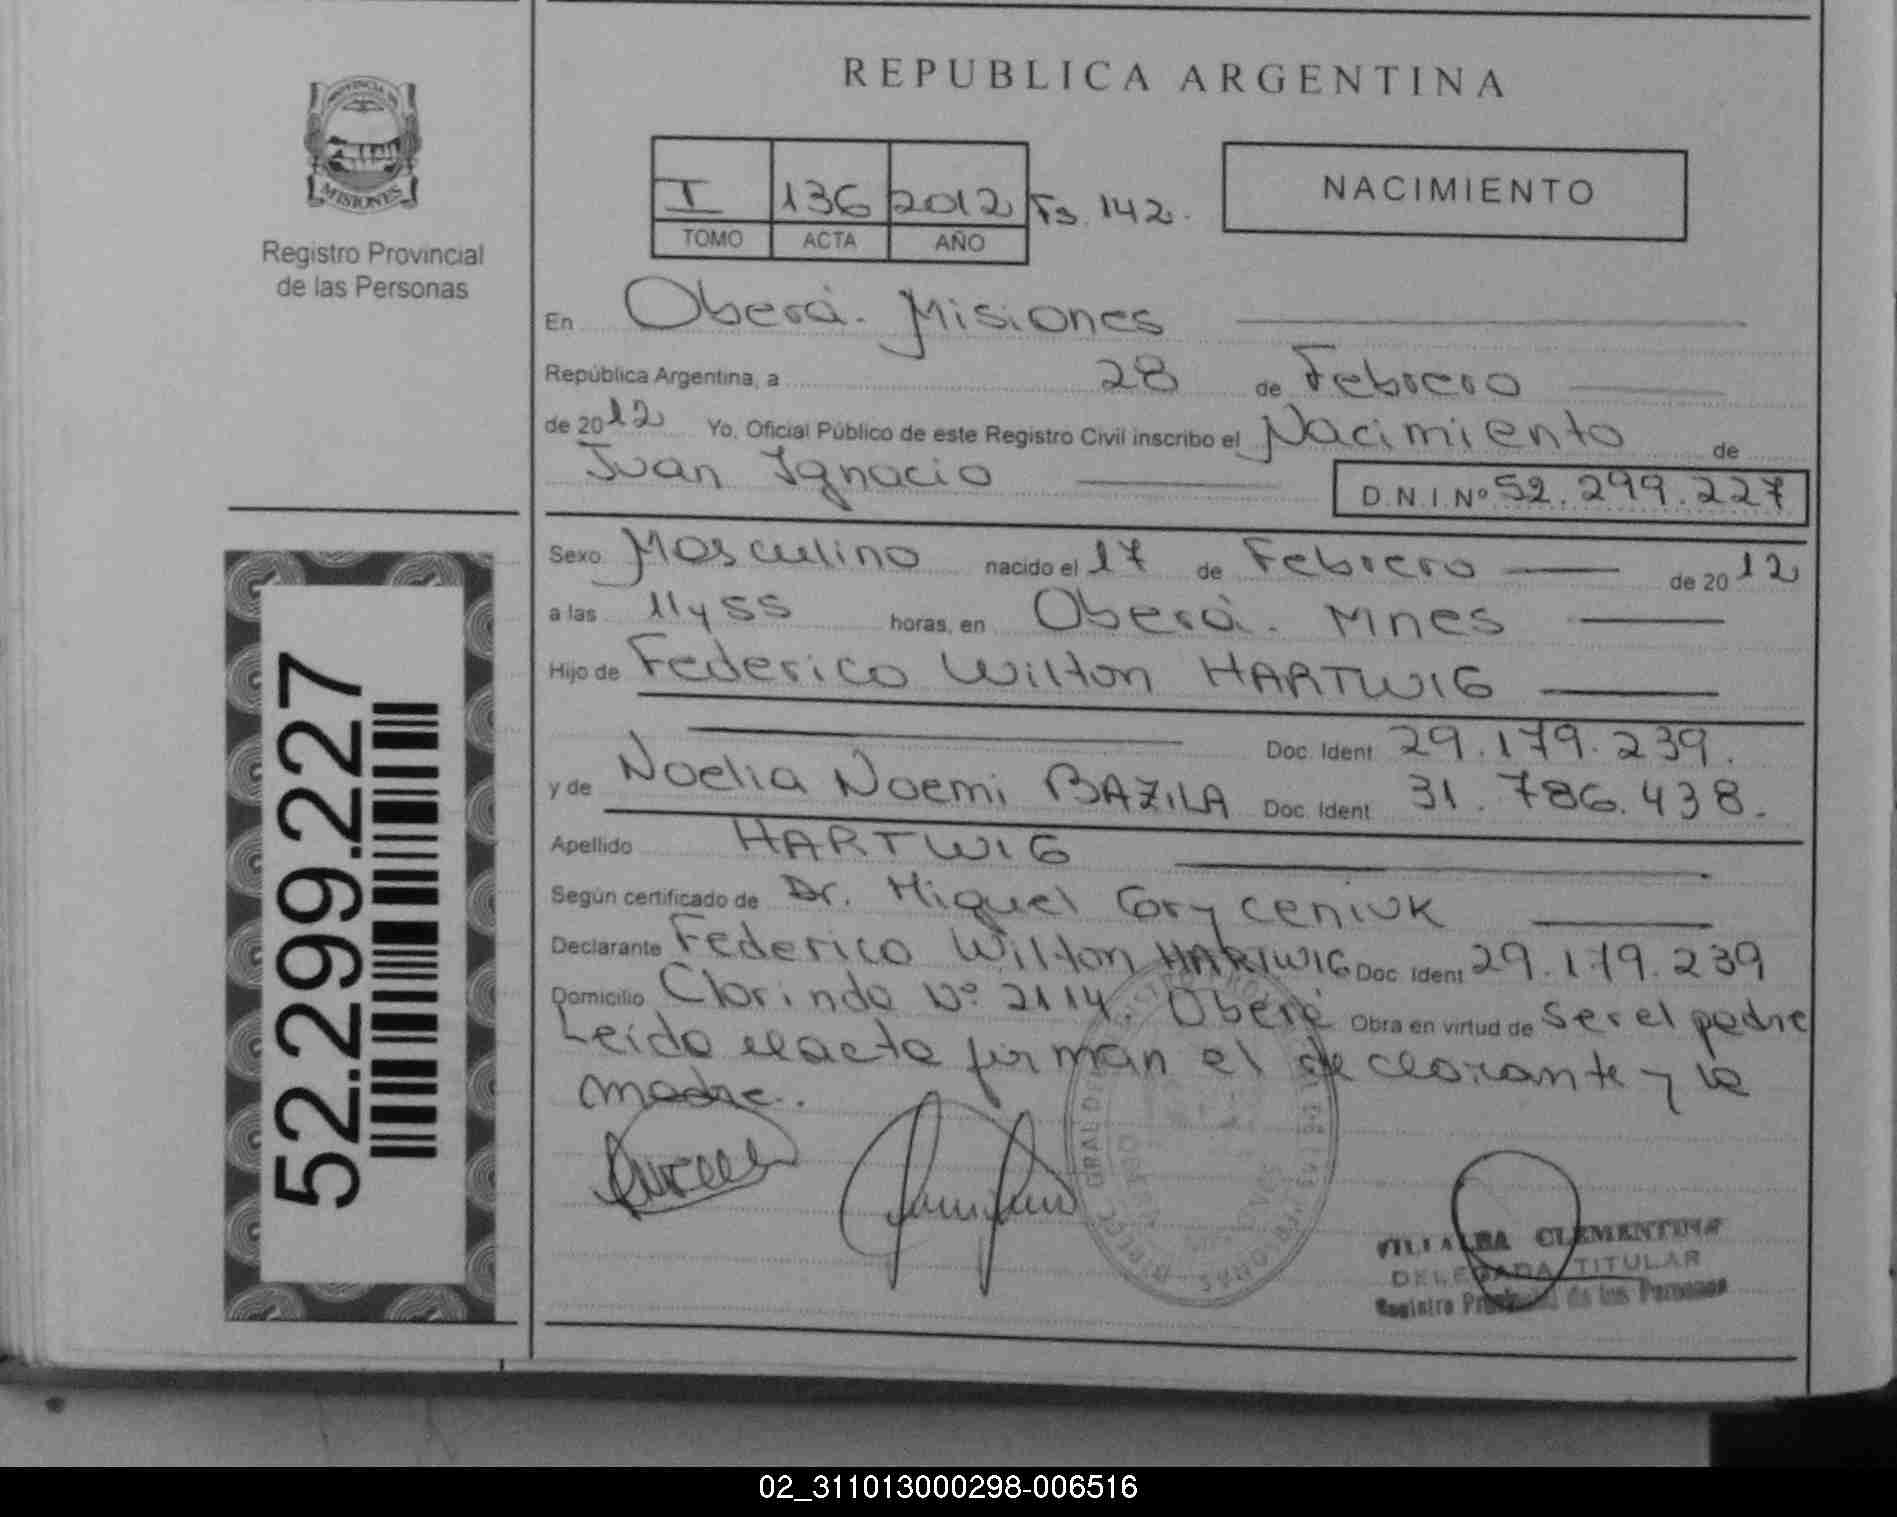 REPUBLICA ARGENTINA
PROVINCIA DE
MISIONES
Registro Provincial
de las Personas
I 136 2012 Fs. 142.
TOMO ACTA AÑO
NACIMIENTO
En Oberá. Misiones
República Argentina, a 28 de Febrero
de 2012 Yo, Oficial Público de este Registro Civil inscribo el Nacimiento de
Juan Ignacio D.N.I. Nº 52.299.227
Sexo Masculino nacido el 17 de Febrero de 2012
a las 11 y 55 horas, en Oberá. Mnes
Hijo de Federico Wilton HARTWIG
Doc. Ident 29.179.239.
y de Noelia Noemi BAZILA Doc. Ident 31.786.438.
Apellido HARTWIG
Según certificado de Dr. Miguel Coryceniuk
Declarante Federico Wilton HARTWIG Doc. Ident 29.179.239
Domicilio Clorinda Nº 2114. Oberá Obra en virtud de ser el padre
Leída el acta firman el declarante y la
madre.
VILLALBA CLEMENTINA
DELEGADA TITULAR
Registro Provincial de las Personas
52.299.227
02_311013000298-006516